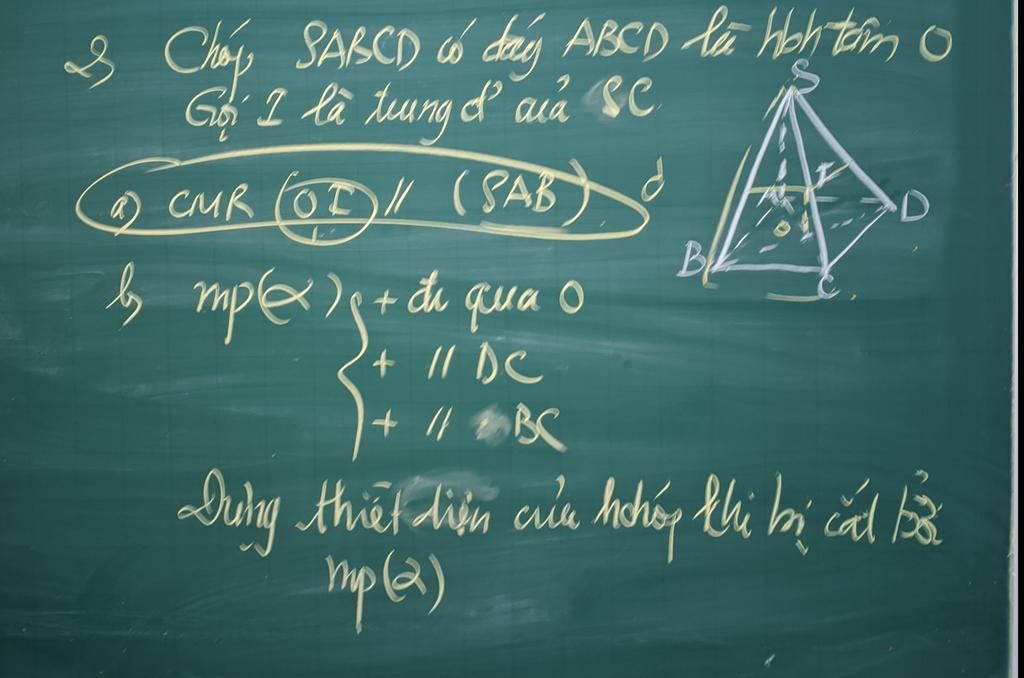 2, Chóp SABCD có đáy ABCD là hbh tâm O
Gọi I là trung đ' của SC.
a) CMR (OI // (SAB)
d
b, mp(α) + đi qua O
+ // DC
+ // BC
Dựng thiết diện của hchóp khi bị cắt bởi
mp(α)
S
I
D
O
B
C